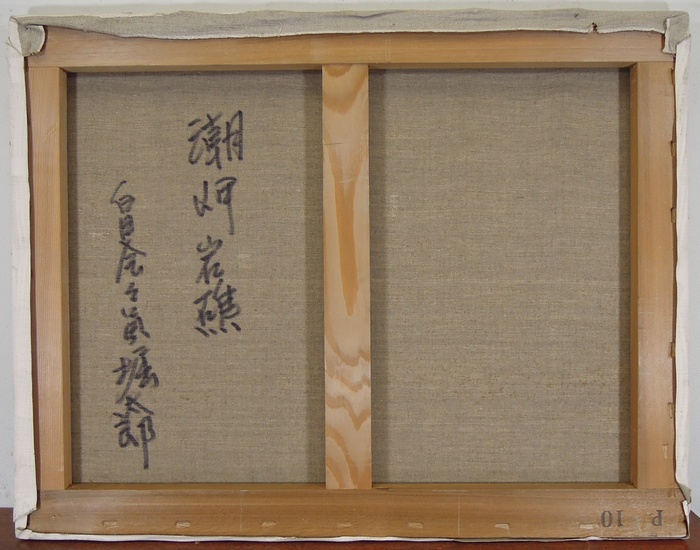 潮岬岩礁
白日会々員堀太郎
P 10